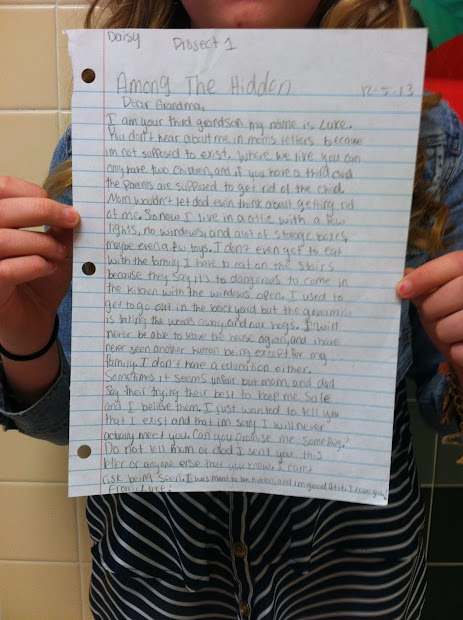 Daisy Project 1
Among The Hidden 12-5-13
Dear Grandma,
I am your third grandson, my name is Luke.
You don't hear about me in moms letters because
im not supposed to exist. Where we live you can
only have two children, and if you have a third child
the parents are supposed to get rid of the child.
Mom wouldn't let dad even think about getting rid
of me. So now I live in a attic with a few
lights, no windows, and alot of storage boxes,
maybe even a few toys. I don't even get to eat
with the family I have to eat on the stairs
because they say it's to dangerous to come in
the kitchen with the windows open. I used to
get to go out in the backyard but the goverment
is taking the woods away, and our hogs. I will
never be able to leave this house again, and i have
never seen another human being except for my
family. I don't have a education either.
Sometimes it seems unfair but mom and dad
say their trying their best to keep me safe
and I believe them. I just wanted to tell you
that I exist and that im sorry I will never
actually meet you. Can you promise me something?
Do not tell mum or dad I sent you this
letter or anyone else that you know. I can't
risk being seen. I was meant to be hidden, and im good at it. I love you!
From: Luke.